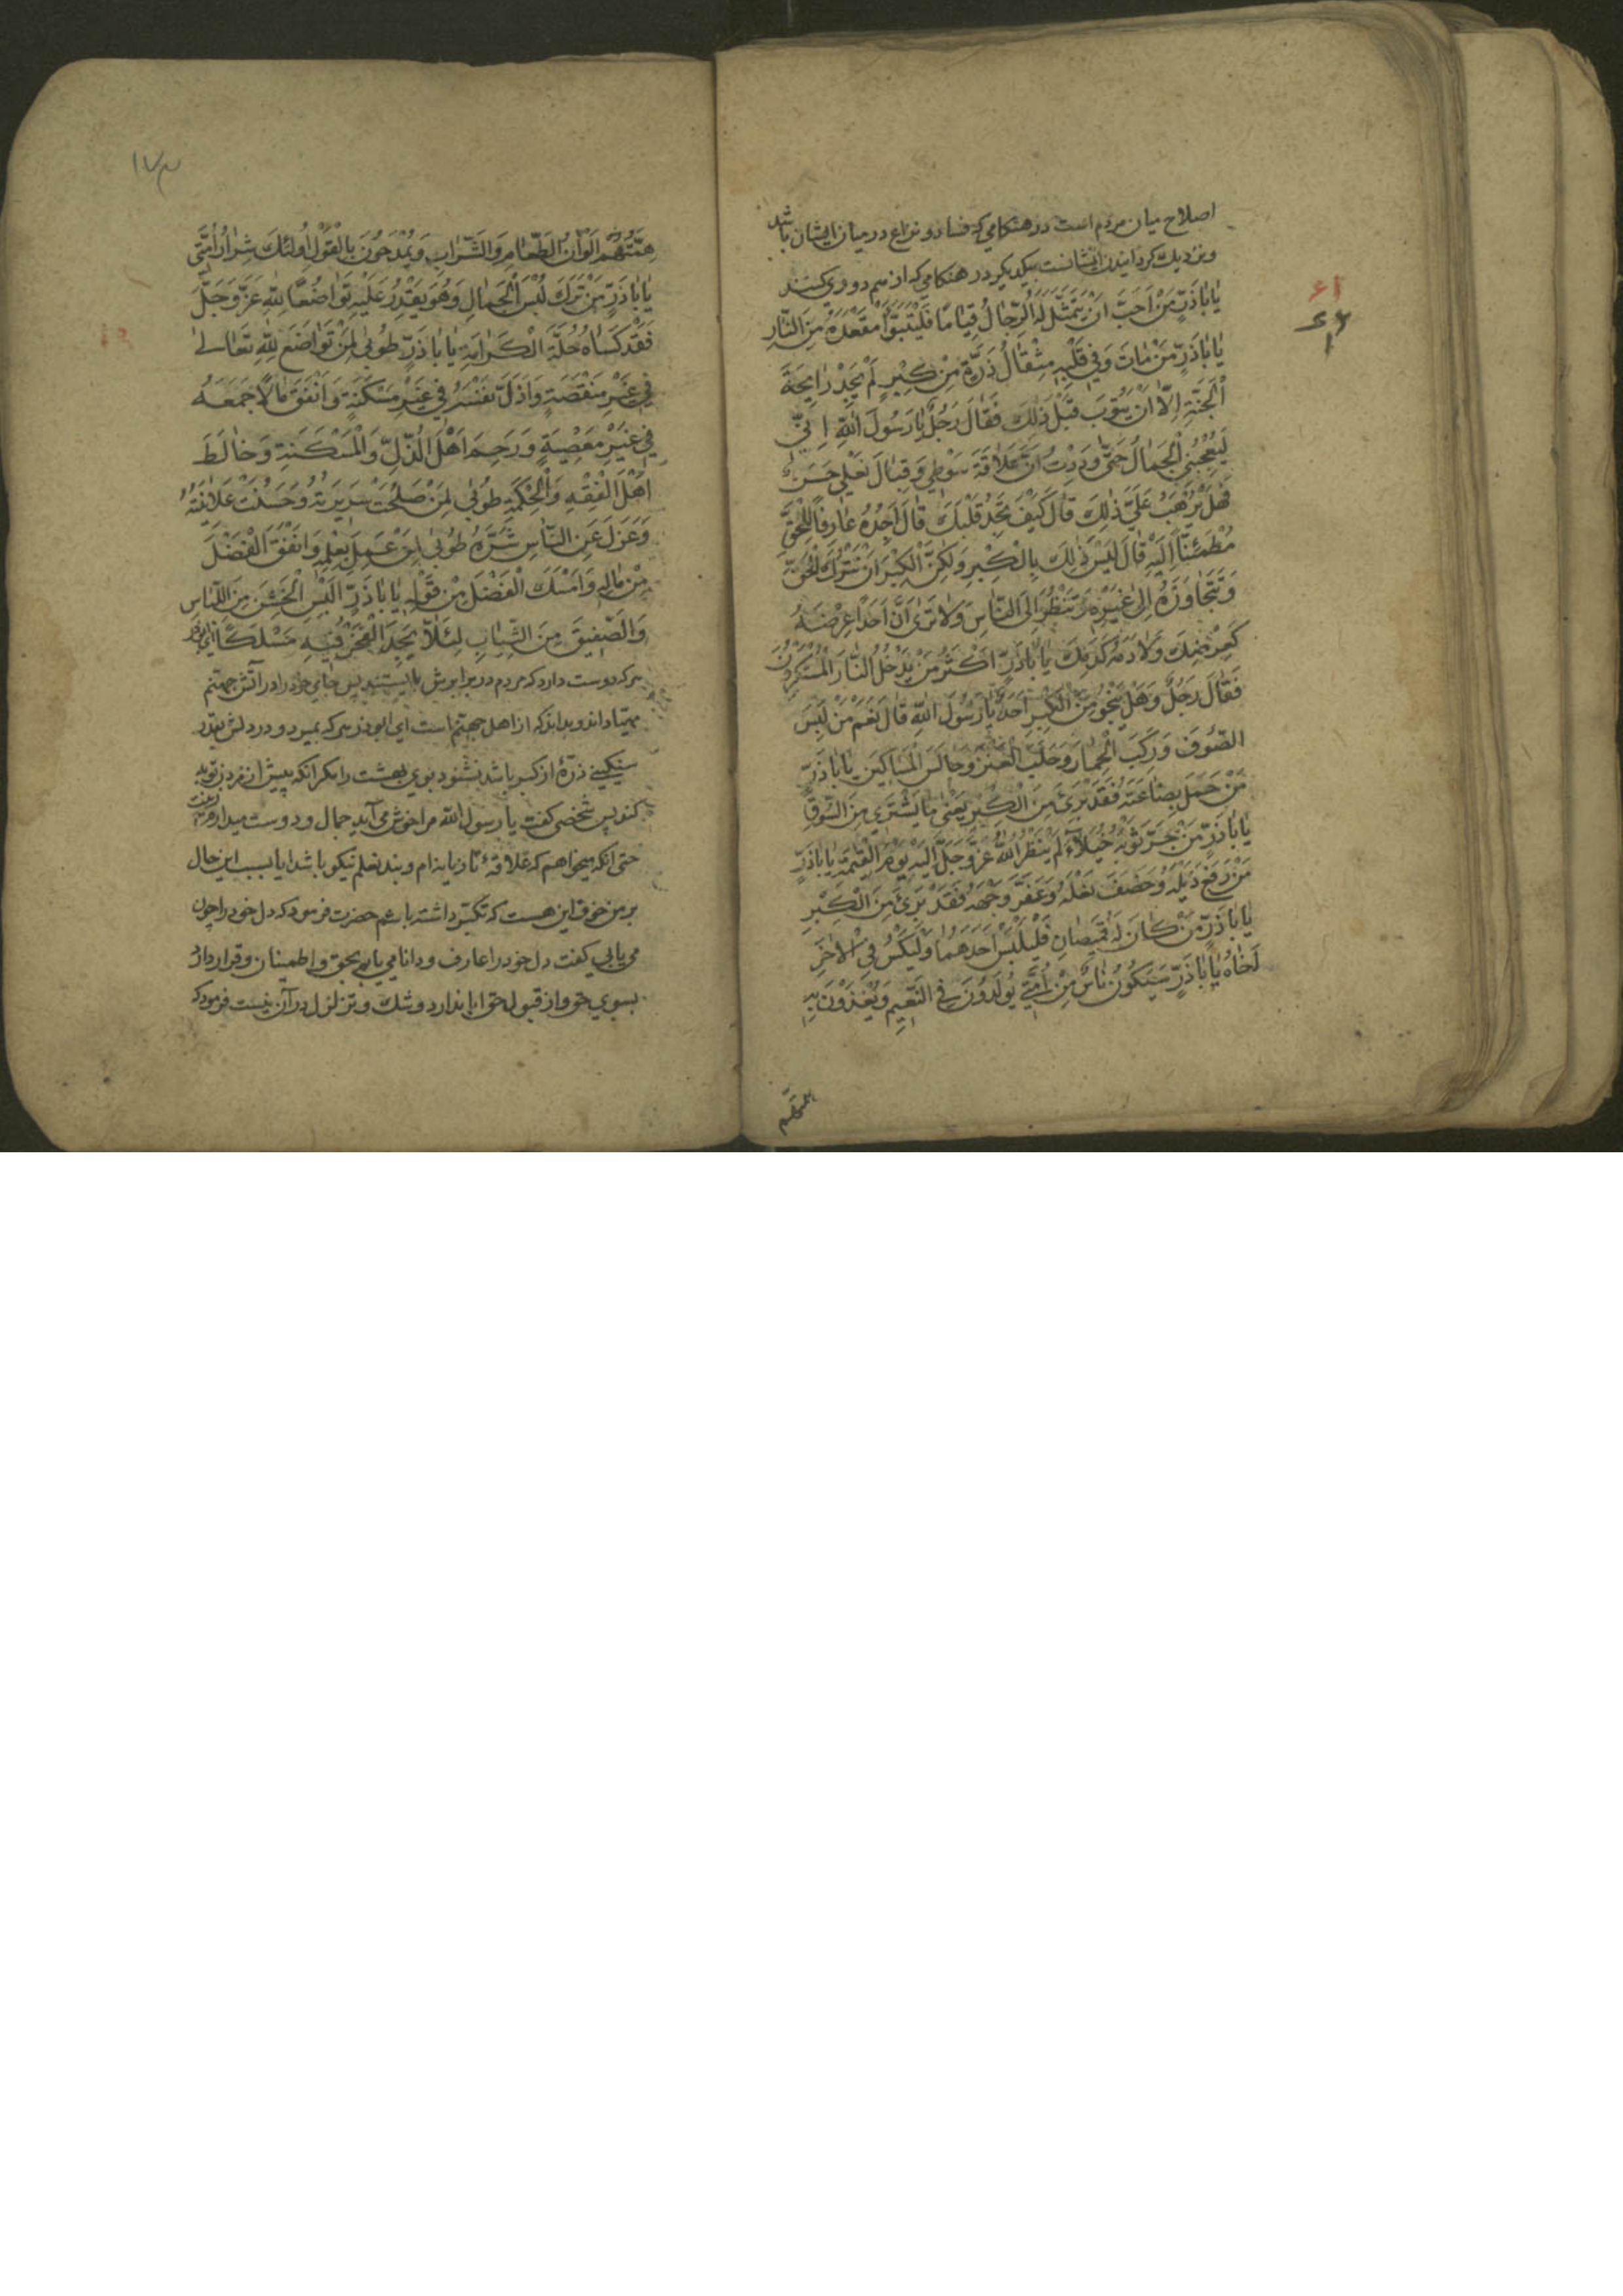 اصلاح میان مردم است در هنکامی که فساد و نزاع در میان ایشان باشد
و نزدیک کردانیدن ایشانست بیکدیکر در هنکامی که از هم دوری کنند
یٰا بٰاذَرٍّ مَنْ اَحَبَّ اَنْ یَتَمَثَّلَ لَهُ الرِّجٰالُ قِیٰامًا فَلْیَتَبَوَّءْ مَقْعَدَهُ مِنَ النّٰارِ
یٰا بٰاذَرٍّ مَنْ مٰاتَ وَفِی قَلْبِهِ مِثْقٰالُ ذَرَّةٍ مِنْ کِبْرٍ لَمْ یَجِدْ رٰایِحَةَ
الْجَنَّةِ اِلّٰا اَنْ یَتُوبَ قَبْلَ ذٰلِكَ فَقٰالَ رَجُلٌ یٰا رَسُولَ اللّٰهِ اِنّی
لَیُعْجِبُنِی الْجَمٰالُ حَتّٰی وَدِدْتُ اَنَّ عَلٰاقَةَ سَوْطِی وَقِبٰالَ نَعْلِی حَسَنٌ
فَهَلْ یُرْهَبُ عَلَیَّ ذٰلِكَ قٰالَ کَیْفَ تَجِدُ قَلْبَكَ قٰالَ اَجِدُهُ عٰارِفًا لِلْحَقِّ
مُطْمَئِنًّا اِلَیْهِ قٰالَ لَیْسَ ذٰلِكَ بِالْکِبْرِ وَلٰکِنَّ الْکِبْرَ اَنْ تَتْرُكَ الْحَقَّ
وَتَتَجٰاوَزَهُ اِلٰی غَیْرِهِ وَتَنْظُرَ اِلَی النّٰاسِ وَلٰا تَرٰی اَنَّ اَحَدًا عِرْضُهُ
کَعِرْضِكَ وَلٰا دَمُهُ کَدَمِكَ یٰا بٰاذَرٍّ اَکْثَرُ مَنْ یَدْخُلُ النّٰارَ الْمُتَکَبِّرُونَ
فَقٰالَ رَجُلٌ وَهَلْ یَنْجُو مِنَ الْکِبْرِ اَحَدٌ یٰا رَسُولَ اللّٰهِ قٰالَ نَعَمْ مَنْ لَبِسَ
الصُّوفَ وَرَکِبَ الْحِمٰارَ وَحَلَبَ الْعَنْزَ وَجٰالَسَ الْمَسٰاکِینَ یٰا بٰاذَرٍّ
مَنْ حَمَلَ بِضٰاعَتَهُ فَقَدْ بَرِئَ مِنَ الْکِبْرِ یَعْنِی مٰا یَشْتَرِی مِنَ السُّوقِ
یٰا بٰاذَرٍّ مَنْ جَرَّ ثَوْبَهُ خُیَلٰاءَ لَمْ یَنْظُرِ اللّٰهُ عَزَّ وَجَلَّ اِلَیْهِ یَوْمَ الْقِیٰمَةِ یٰا بٰاذَرٍّ
مَنْ رَفَعَ ذَیْلَهُ وَخَصَفَ نَعْلَهُ وَعَفَّرَ وَجْهَهُ فَقَدْ بَرِئَ مِنَ الْکِبْرِ
یٰا بٰاذَرٍّ مَنْ کٰانَ لَهُ قَمِیصٰانِ فَلْیَلْبَسْ اَحَدَهُمٰا وَلْیَکْسُ فِی الْاٰخَرِ
اَخٰاهُ یٰا بٰاذَرٍّ سَیَکُونُ نٰاسٌ مِنْ اُمَّتِی یُولَدُونَ فِی النَّعِیمِ وَیُغْذَوْنَ بِهِ
همّتهم
۱۷۳
هِمَّتُهُمْ اَلْوٰانُ الطَّعٰامِ وَالشَّرٰابِ وَیُمْدَحُونَ بِالْقَوْلِ اُولٰئِكَ شِرٰارُ اُمَّتِی
یٰا بٰاذَرٍّ مَنْ تَرَكَ لُبْسَ الْجَمٰالِ وَهُوَ یَقْدِرُ عَلَیْهِ تَوٰاضُعًا لِلّٰهِ عَزَّ وَجَلَّ
فَقَدْ کَسٰاهُ حُلَّةَ الْکَرٰامَةِ یٰا بٰاذَرٍّ طُوبٰی لِمَنْ تَوٰاضَعَ لِلّٰهِ تَعٰالٰی
فِی غَیْرِ مَنْقَصَةٍ وَاَذَلَّ نَفْسَهُ فِی غَیْرِ مَسْکَنَةٍ وَاَنْفَقَ مٰالًا جَمَعَهُ
فِی غَیْرِ مَعْصِیَةٍ وَرَحِمَ اَهْلَ الذُّلِّ وَالْمَسْکَنَةِ وَخٰالَطَ
اَهْلَ الْفِقْهِ وَالْحِکْمَةِ طُوبٰی لِمَنْ صَلُحَتْ سَرِیرَتُهُ وَحَسُنَتْ عَلٰانِیَتُهُ
وَعَزَلَ عَنِ النّٰاسِ شَرَّهُ طُوبٰی لِمَنْ عَمِلَ بِعِلْمِهِ وَاَنْفَقَ الْفَضْلَ
مِنْ مٰالِهِ وَاَمْسَكَ الْفَضْلَ مِنْ قَوْلِهِ یٰا بٰاذَرٍّ اَلْبَسِ الْخَشِنَ مِنَ اللِّبٰاسِ
وَالصَّفِیقَ مِنَ الثِّیٰابِ لِئَلّٰا یَجِدَ الْفَخْرُ فِیهِ مَسْلَکًا ای ابوذر
هر که دوست دارد که مردم در برابرش بایستند پس جای خود را در آتش جهنم
مهیّا داند و بداند که از اهل جهنم است ای ابوذر هر که بمیرد و در دلش بقدر
سنکینی ذرّهٔ از کبر باشد نشنود بوی بهشت را مکر انکه پیش از مردن توبه
کند پس شخصی کفت یا رسول الله مرا خوش می آید جمال و دوست میدارم زینت
حتی انکه میخواهم که علاقهٔ تازیانه ام و بند نعلم نیکو باشد ایا بسبب این حال
بر من خوف این هست که تکبّر داشته باشم حضرت فرمود که دل خود را چون
می یابی کفت دل خود را عارف و دانا می یابم بحق و اطمینان و قرار دارد
بسوی حق و از قبول حق ابا ندارد و شك و تزلزل در آن نیست فرمود که